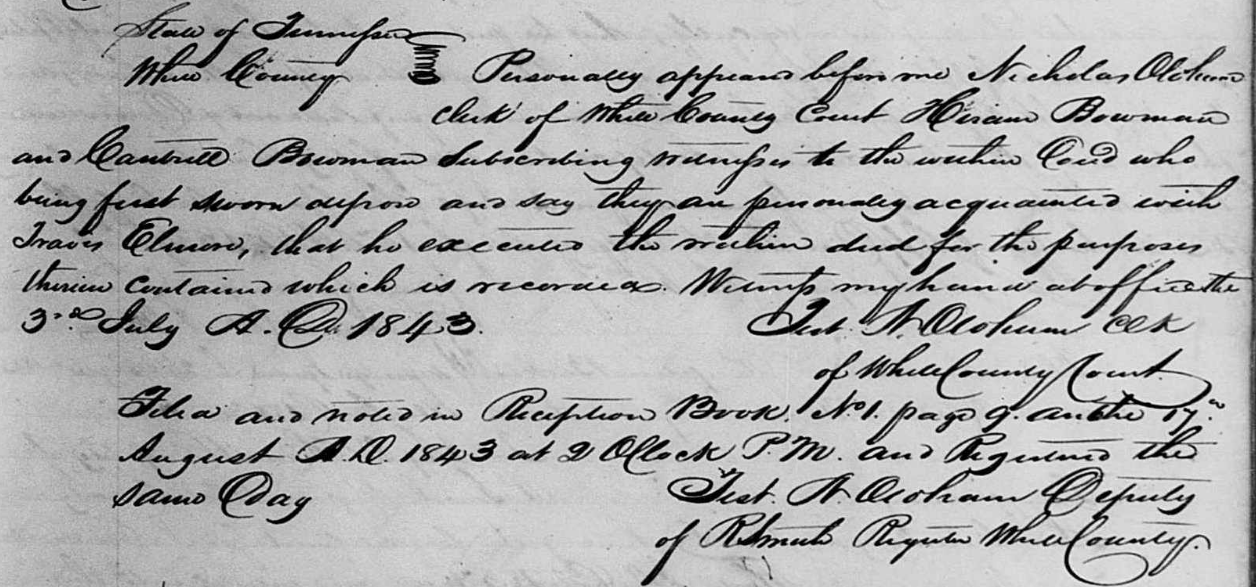 State of Tennessee
White County Personally appeard before me Nicholas Oldham
clerk of White County Court Hiram Bowman
and Cantrell Bowman Subscribing witnesses to the within Deed who
being first sworn depose and say they are personally acquainted with
Travis Elmore, that he executed the within deed for the purposes
therein contained which is recorded. Witness my hand at office the
3rd July A. D. 1843. Test. N. Oldham Clk
of White County Court
Filed and noted in Reception Book. No 1. page 9. on the 17th
August A.D. 1843 at 2 OClock P.M. and Registered the
same Day Test. N. Oldham Deputy
of Register White County.